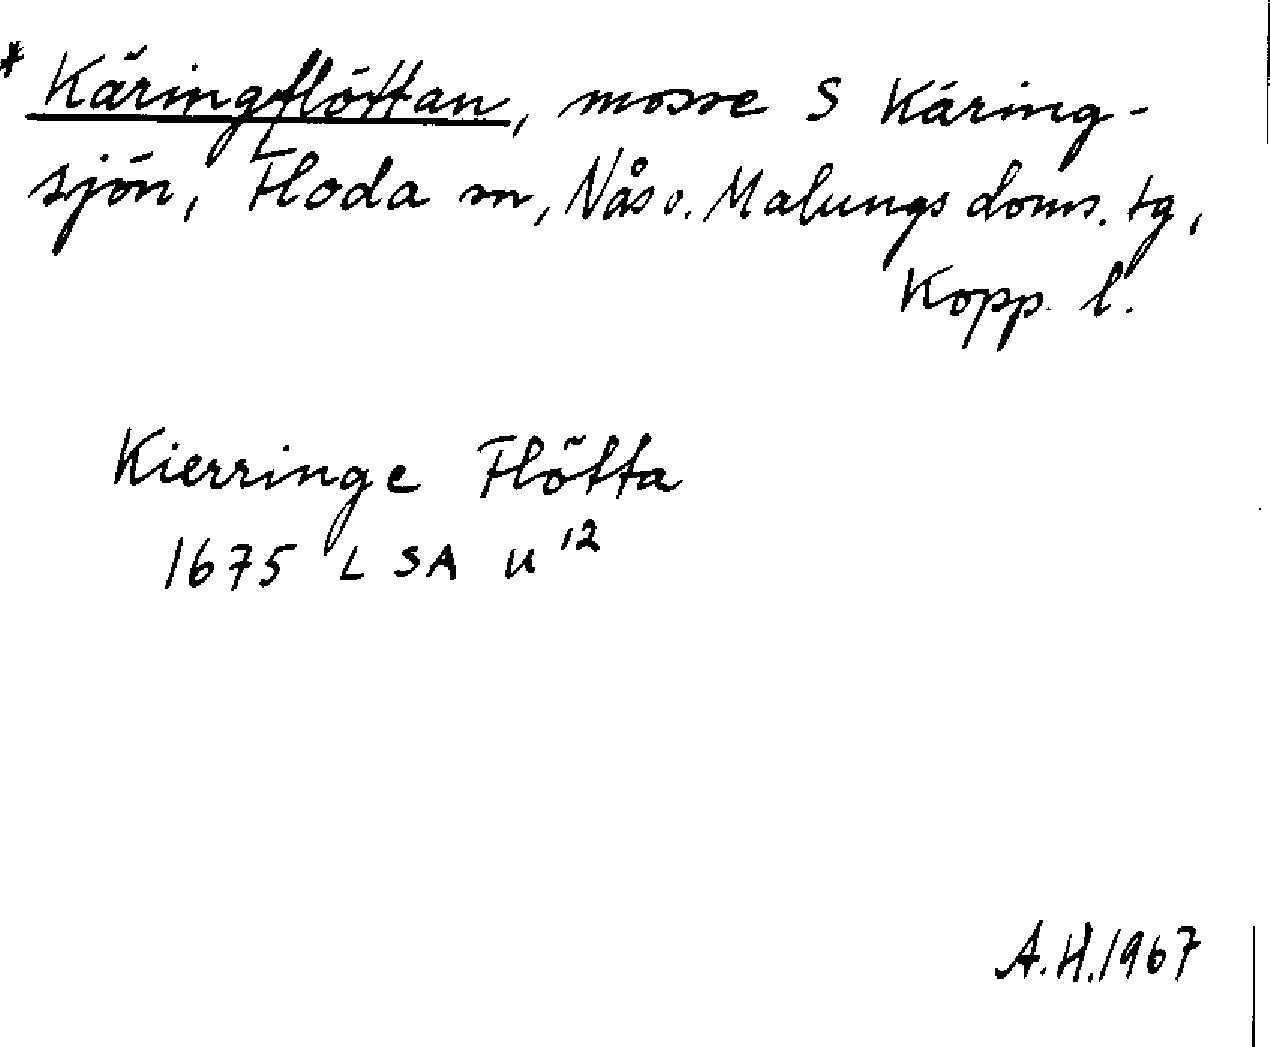 * Käringflöttan, mosse S Käring-
sjön, Floda sn, Nås o. Malungs doms. tg,
Kopp. l.
Kierringe Flötta
1675 LSA U 12
A.H. 1967